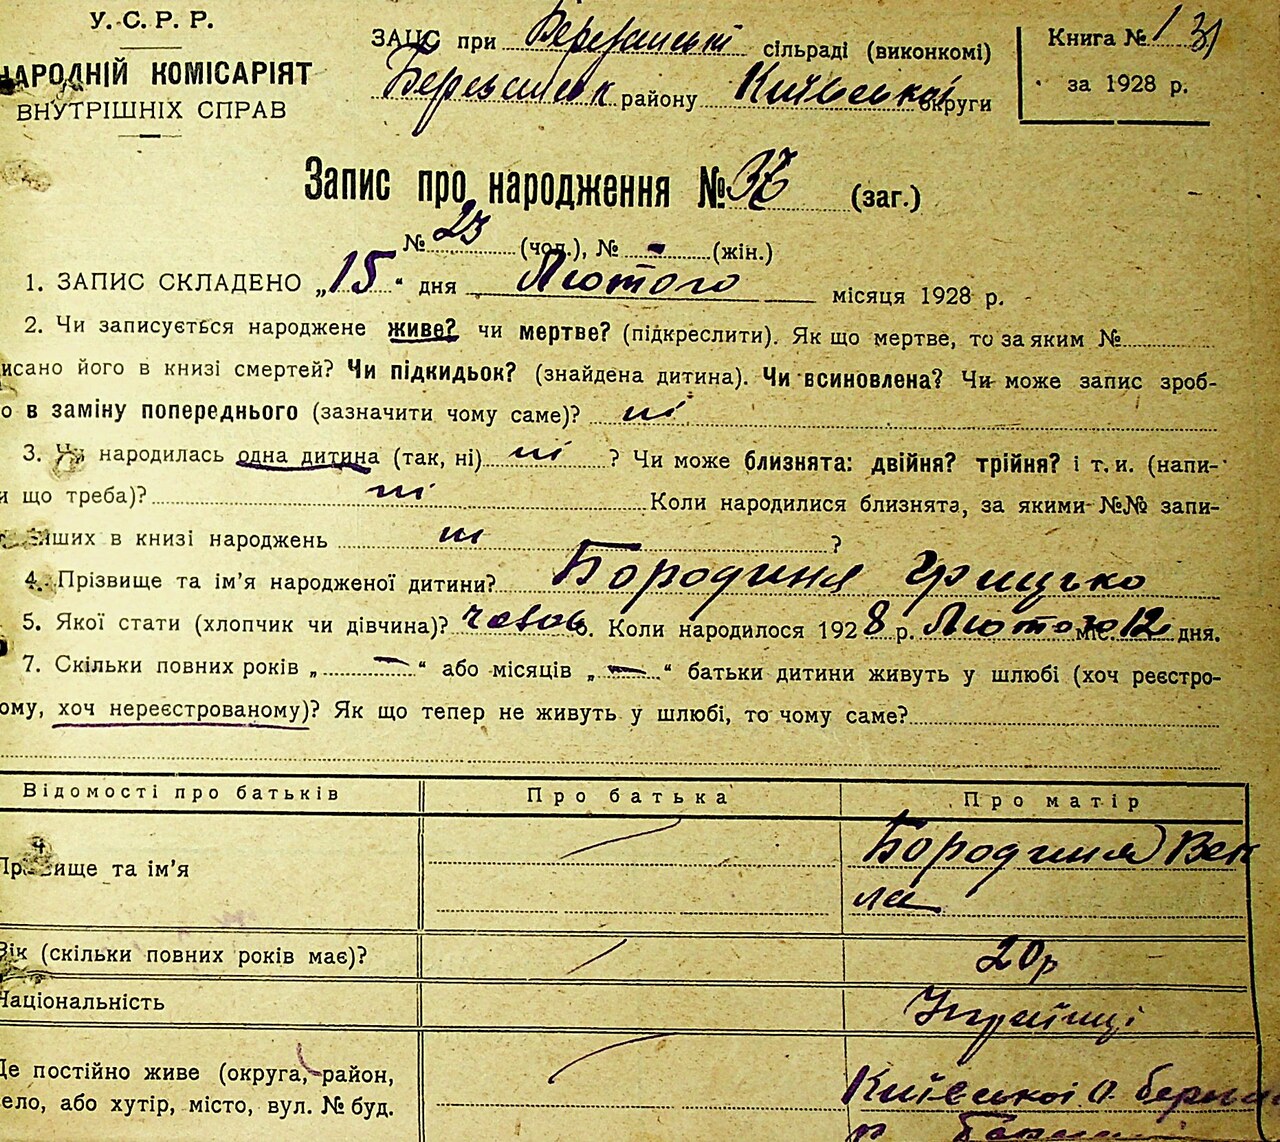 У.С.Р.Р.
НАРОДНІЙ КОМІСАРІЯТ
ВНУТРІШНІХ СПРАВ
ЗАЦС при Березанські сільраді (виконкомі)
Березанськ району Київської округи
Книга № 1 31
за 1928 р.
Запис про народження № 37 (заг.)
№ 23 (чол.), № - (жін.)
1. ЗАПИС СКЛАДЕНО „15“ дня Лютого місяця 1928 р.
2. Чи записується народжене живе? чи мертве? (підкреслити). Як що мертве, то за яким №
исано його в книзі смертей? Чи підкидьок? (знайдена дитина). Чи всиновлена? Чи може запис зроб-
о в заміну попереднього (зазначити чому саме)? ні
3. Чи народилась одна дитина (так, ні) ні ? Чи може близнята: двійня? трійня? і т. и. (напи-
и що треба)? ні Коли народилися близнята, за якими №№ запи-
них в книзі народжень ні ?
4. Прізвище та ім’я народженої дитини? Бородиня Грицько
5. Якої статі (хлопчик чи дівчина)? чолов. Коли народилося 1928 р. Лютого міс. 12 дня.
7. Скільки повних років „ — “ або місяців „ — “ батьки дитини живуть у шлюбі (хоч реєстро-
ому, хоч нереєстрованому)? Як що тепер не живуть у шлюбі, то чому саме?
Відомості про батьків Про батька Про матір
Прізвище та ім’я Бородиня Век
ла
Вік (скільки повних років має)? 20 р
Національність Украінці
Де постійно живе (округа, район, Київської о.
село, або хутір, місто, вул. № буд. р.